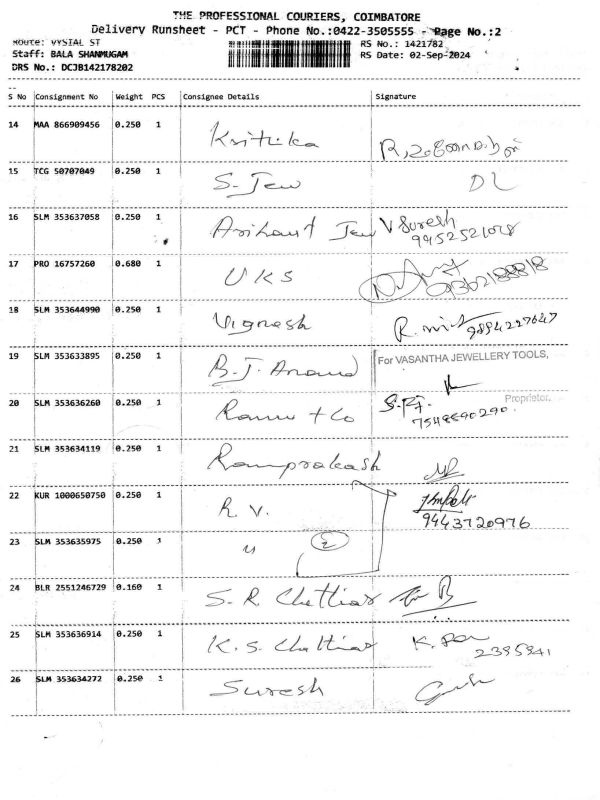 THE PROFESSIONAL COURIERS, COIMBATORE
Delivery Runsheet - PCT - Phone No.:0422-3505555 - Page No.:2
Route: VYSIAL ST
RS No.: 1421782
Staff: BALA SHANMUGAM
RS Date: 02-Sep-2024
DRS No.: DCJB142178202
S No Consignment No Weight PCS Consignee Details Signature
14 MAA 866909456 0.250 1 Krithika
15 TCG 50707049 0.250 1 S. Jew DL
16 SLM 353637058 0.250 1 Arihant Jew V Suresh
9452521028
17 PRO 16757260 0.680 1 UKS
18 SLM 353644990 0.250 1 Vignesh 9894227647
19 SLM 353633895 0.250 1 B.J. Anand For VASANTHA JEWELLERY TOOLS,
Proprietor.
20 SLM 353636260 0.250 1 Ramu + Co 7548890290
21 SLM 353634119 0.250 1 Ramprakash
22 KUR 1000650750 0.250 1 R. V.
9443720976
23 SLM 353635975 0.250 1 " 2
24 BLR 2551246729 0.160 1 S. R Chettiar
25 SLM 353636914 0.250 1 K. S. Chettiar 2395941
26 SLM 353634272 0.250 1 Suresh